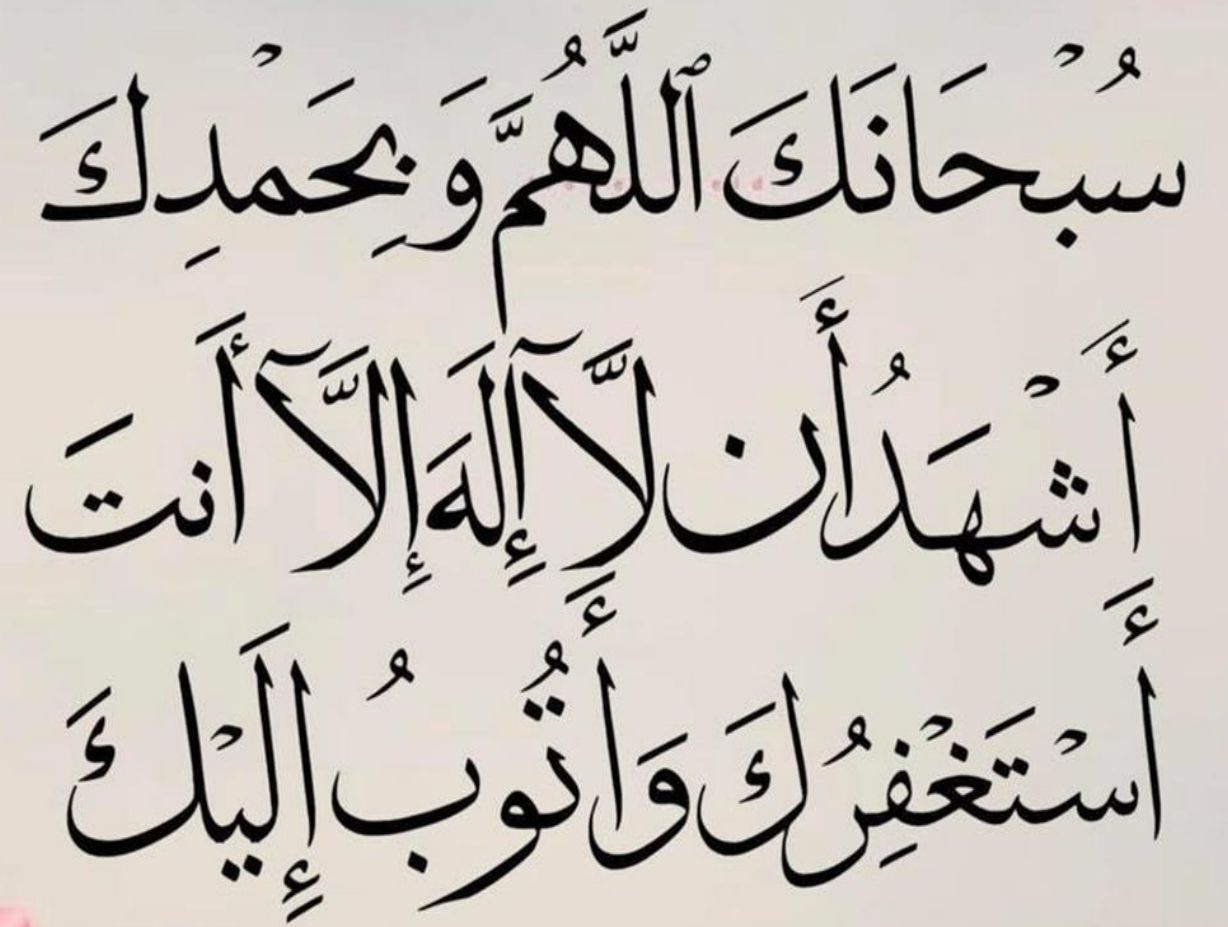 سُبْحَانَكَ ٱللَّهُمَّ وَبِحَمْدِكَ
أَشْهَدُ أَن لَّآ إِلَهَ إِلَّآ أَنتَ
أَسْتَغْفِرُكَ وَأَتُوبُ إِلَيْكَ